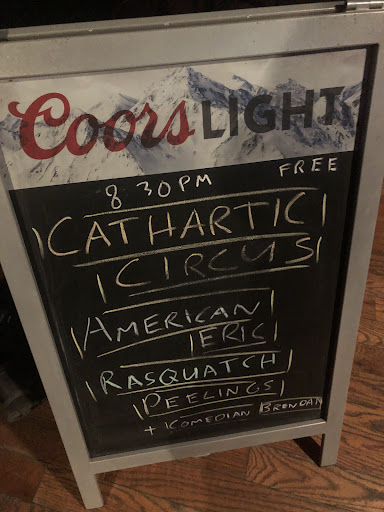 Coors LIGHT
8 30PM FREE
CATHARTIC
CIRCUS
AMERICAN
ERIC
RASQUATCH
PEELINGS
+ COMEDIAN BRENDAN